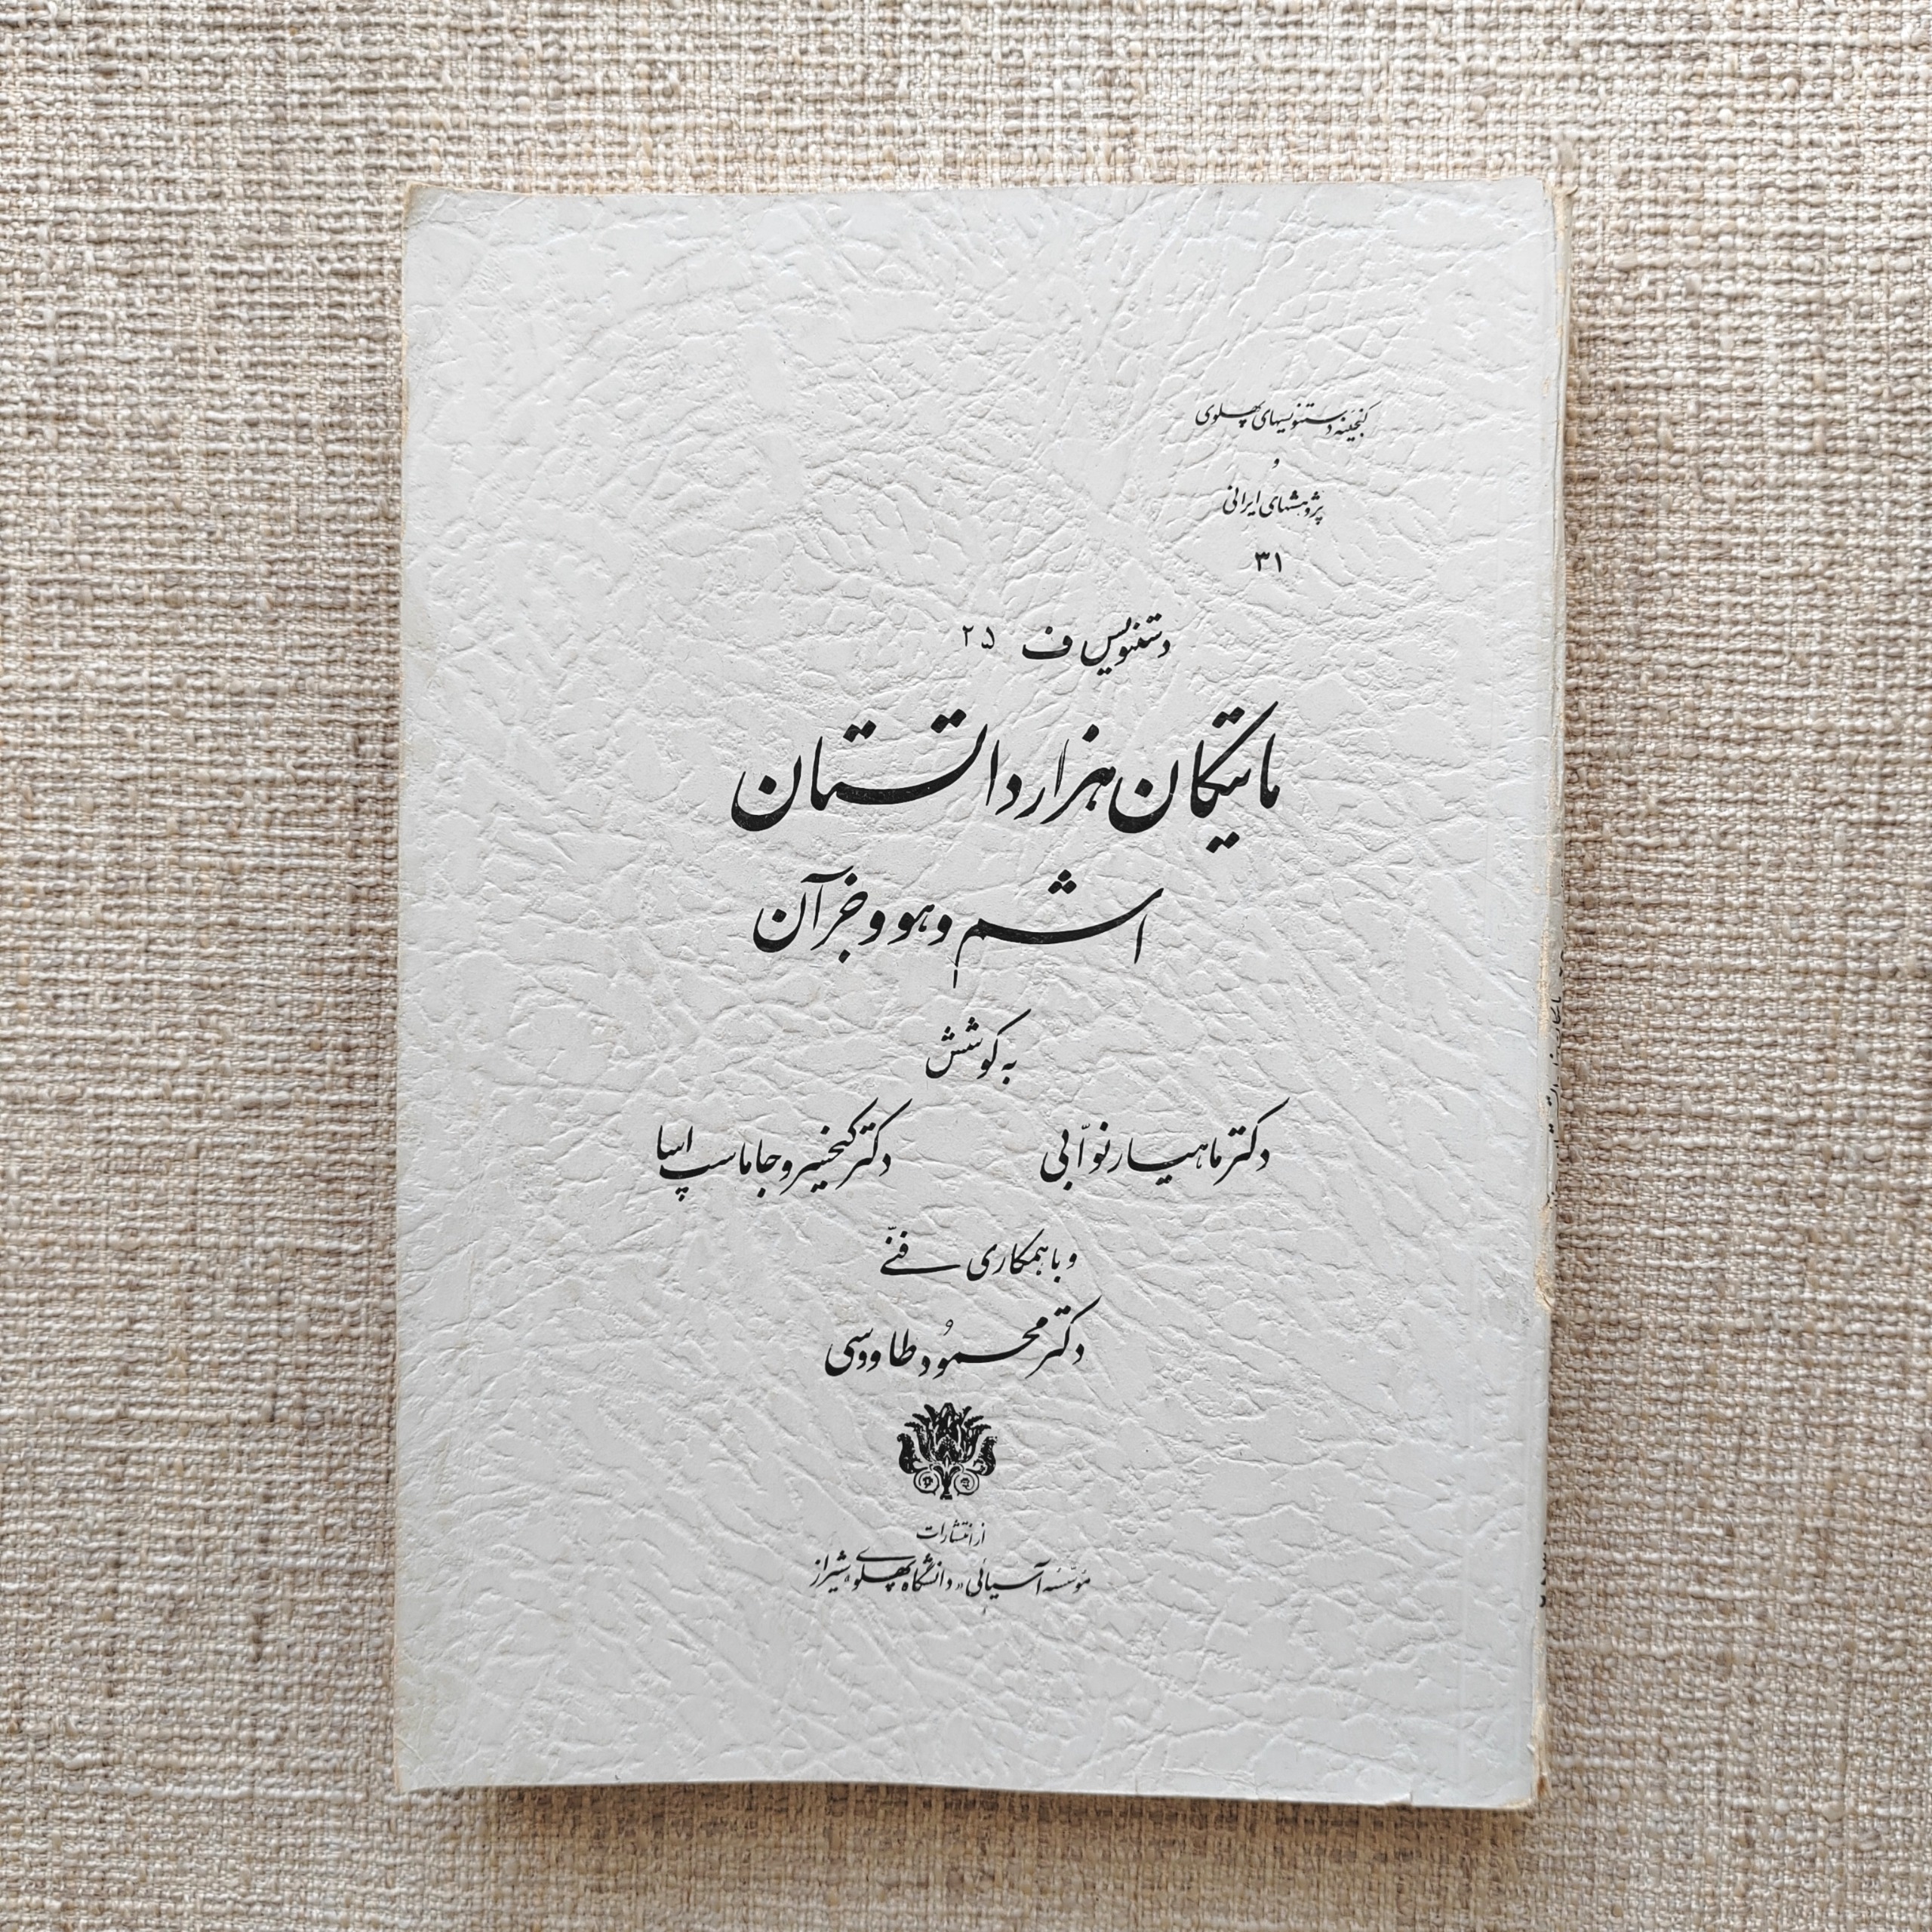 گنجینه دستنویسهای پهلوی
و
پژوهشهای ایرانی
۳۱
دستنویس ف ۲۵
ماتیکان هزار داتستان
اشم وهو و جز آن
به کوشش
دکتر ماهیار نوّابی دکتر کیخسرو جاماسپ اسا
و با همکاری فنّی
دکتر محمود طاووسی
از انتشارات
مؤسّسه آسیائی «دانشگاه پهلوی» شیراز